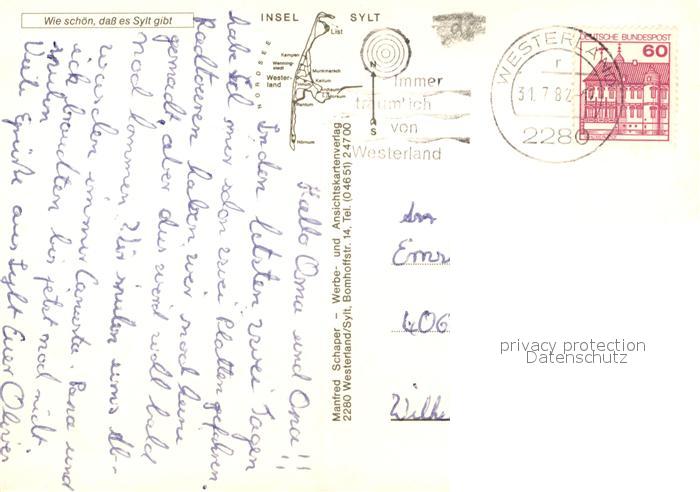 Wie schön, daß es Sylt gibt
INSEL SYLT
List
Kampen
Wenning-
stedt
Munkmarsch
Wester-
land
Keitum
Archsum
Morsum
Rantum
Hörnum
NORDSEE
N
S
Immer
träum' ich
von
Westerland
WESTERLAND
31.7.82
2280
DEUTSCHE BUNDESPOST
60
Manfred Schaper – Werbe- und Ansichtskartenverlag
2280 Westerland/Sylt, Bomhoffstr. 14, Tel. (04651) 24700
Hallo Oma und Opa!!
In den letzten zwei Tagen
habe ich mir schon zwei Platten gefahren.
Radtouren haben wir noch keine
gemacht, aber das wird wohl bald
noch kommen. Wir spülen uns ab-
waschen immer Papa und
ich brauchten bis jetzt noch nicht.
spülen
Viele Grüße aus Sylt Euer Oliver
An
406
Wilh
privacy protection
Datenschutz